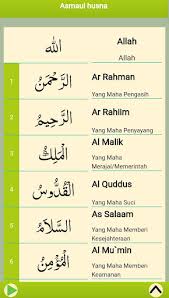 Aamaaul husna
الله
Allah
Allah
1
الرَّحْمَنُ
Ar Rahman
Yang Maha Pengasih
2
الرَّحِيمُ
Ar Rahiim
Yang Maha Penyayang
3
الْمَلِكُ
Al Malik
Yang Maha
Merajai/Memerintah
4
الْقُدُّوسُ
Al Quddus
Yang Maha Suci
5
السَّلَامُ
As Salaam
Yang Maha Memberi
Kesejahteraan
6
الْمُؤْمِنُ
Al Mu`min
Yang Maha Memberi
Keamanan